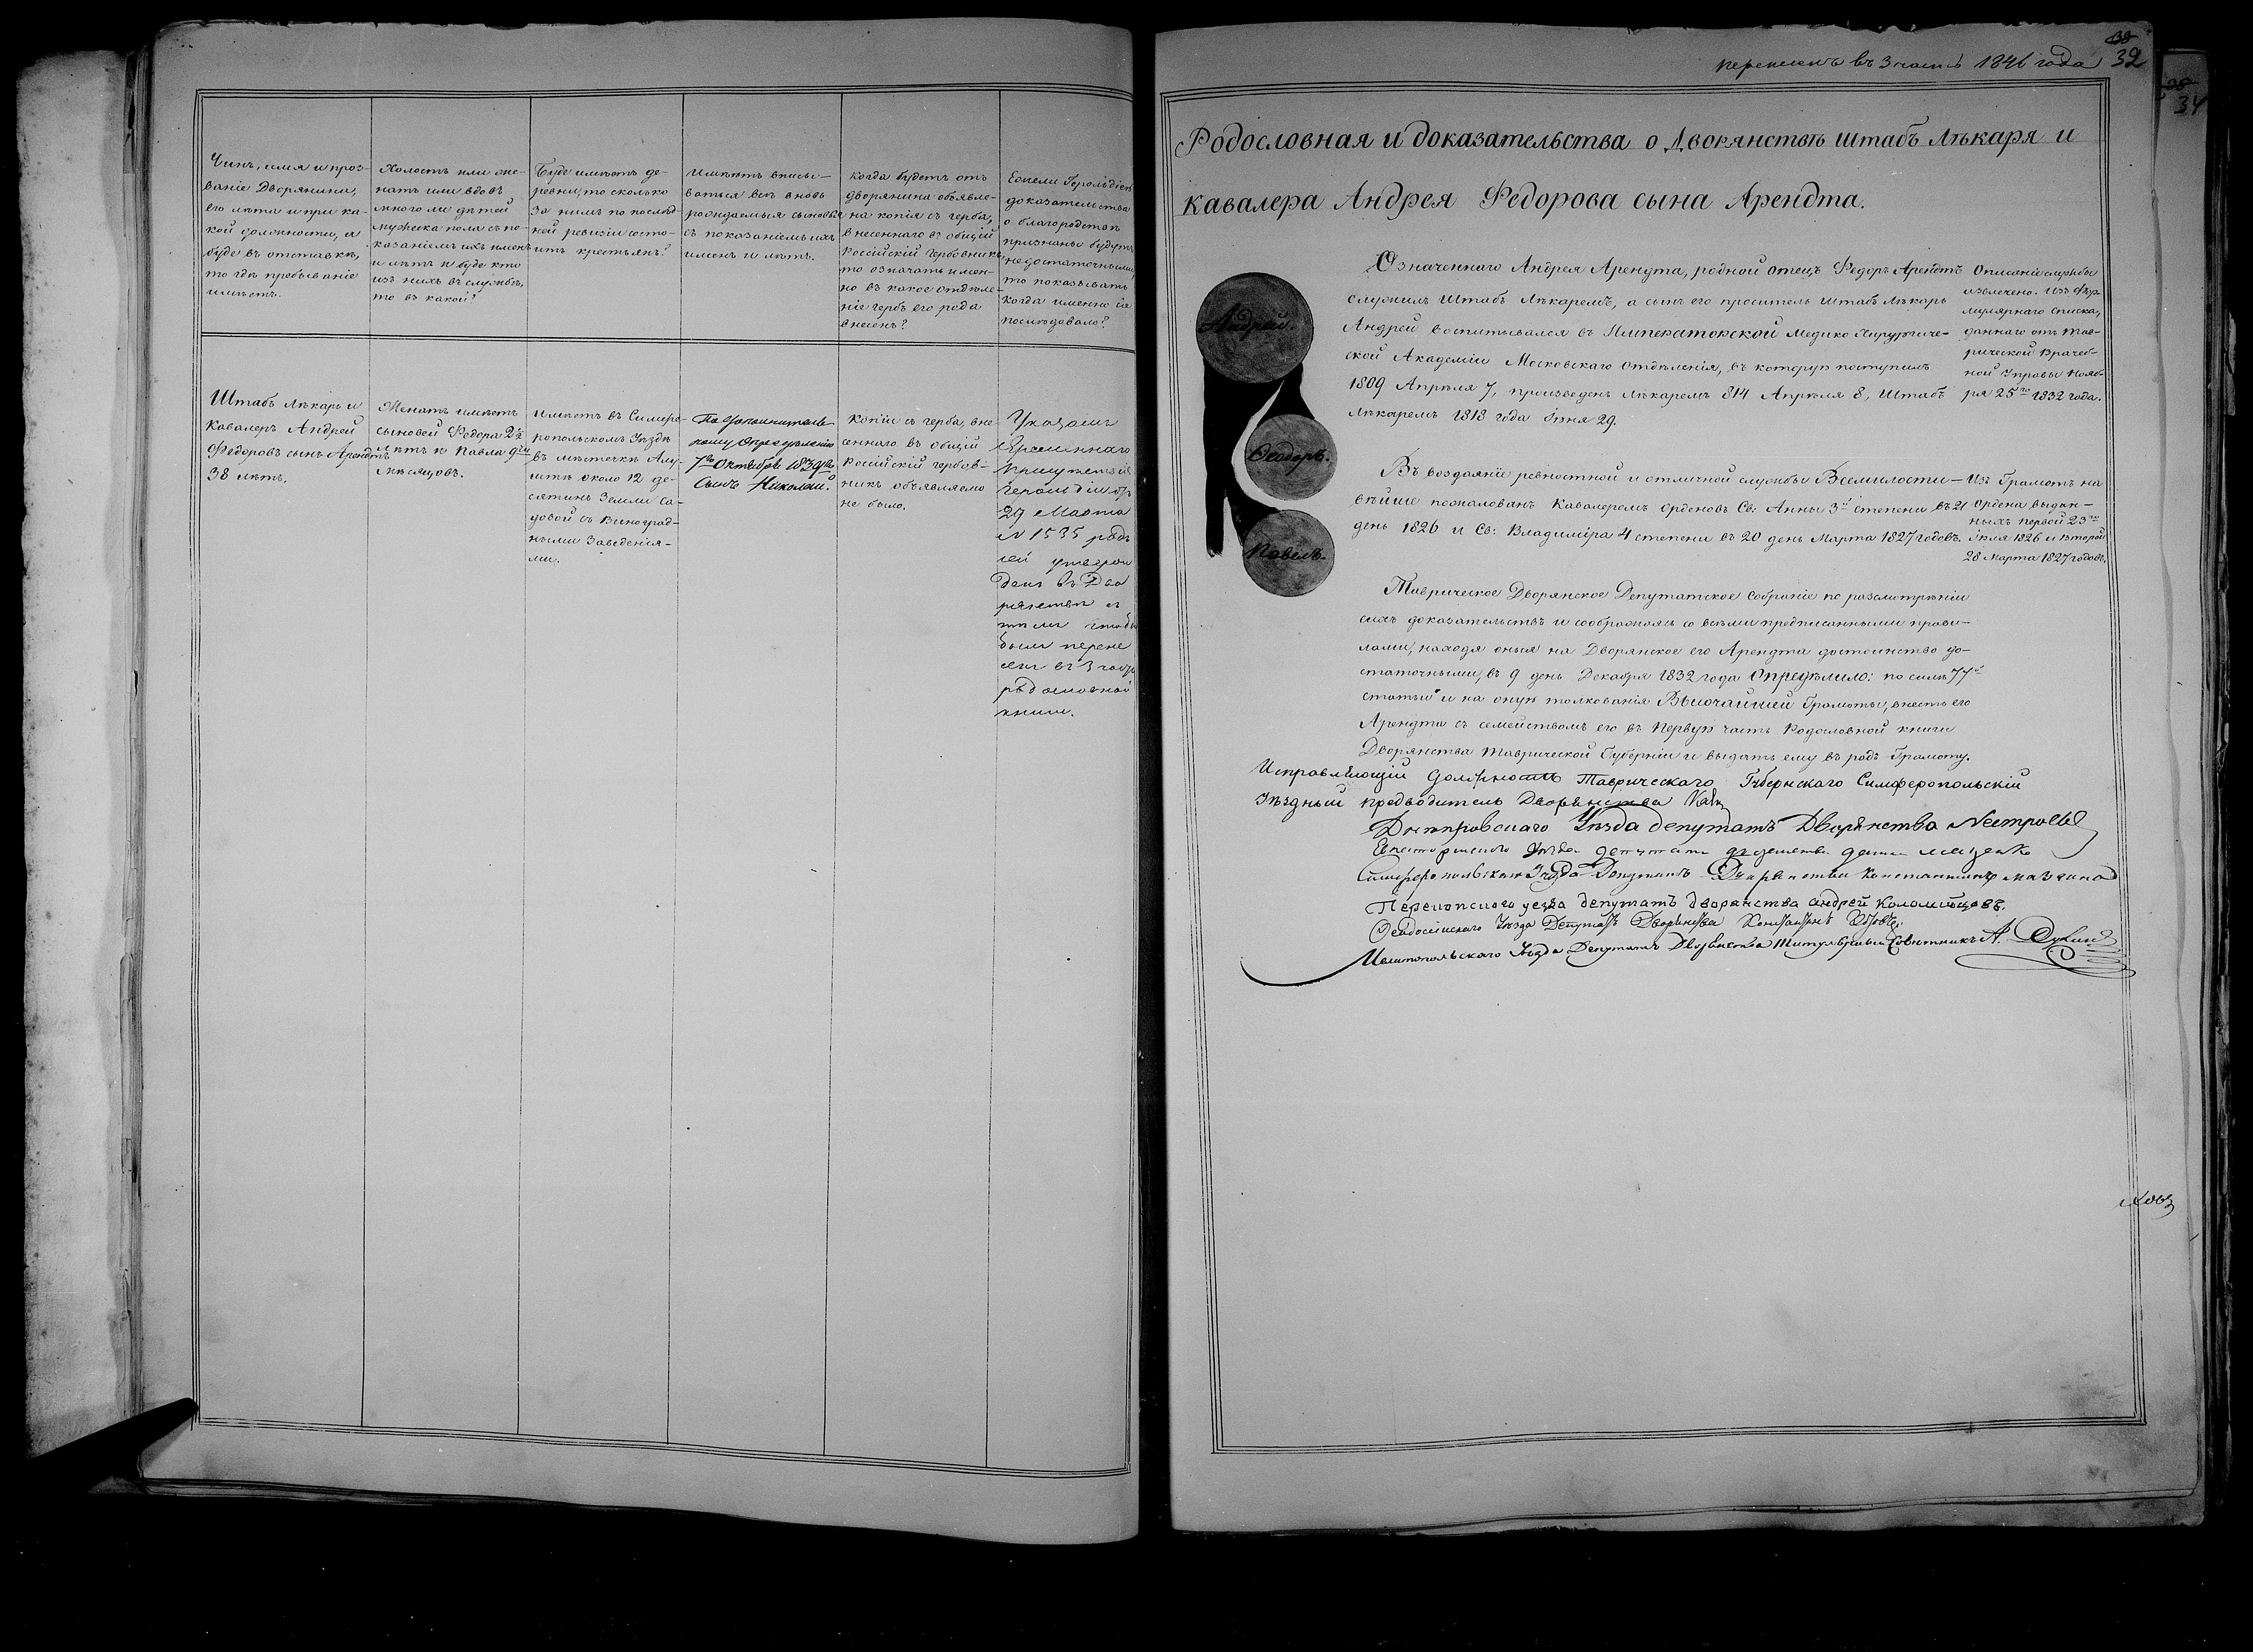 Чинъ, имя и проз-
ваніе Дворянина,
его лѣта и при ка-
кой должности, а
буде въ отставкѣ,
то гдѣ пребываніе
имѣетъ.
Холостъ или же-
натъ или вдовъ
много ли дѣтей
мужеска пола съ по-
казаніемъ ихъ именъ
и лѣтъ и буде кто
изъ нихъ въ службѣ,
то въ какой?
Буде имѣетъ де-
ревни, то сколько
за нимъ по послѣд-
ней ревизіи состо-
итъ крестьянъ?
Имѣютъ вписы-
ваться всѣ вновь
рождаемыя сыновья
съ показаніемъ ихъ
именъ и лѣтъ.
Когда будетъ отъ
дворянина объявле-
на копія съ герба,
внесеннаго въ общій
Россійскій Гербовникъ,
то означать имен-
но въ какое отдѣле-
ніе гербъ его рода
внесенъ?
Ежели Герольдіею
доказательства
о благородствѣ
признаны будутъ
недостаточными,
то показывать
когда именно сіе
послѣдовало?
Штабъ Лѣкарь и
Кавалеръ Андрей
Федоровъ сынъ Арендтъ
38 лѣтъ.
Женатъ имѣетъ
сыновей Федора 2½
лѣтъ и Павла 9ти
мѣсяцовъ.
Имѣетъ въ Симфе-
ропольскомъ Уѣздѣ
въ мѣстечкѣ Алу-
штѣ около 12 де-
сятинъ Земли са-
довой съ виноград-
ными Заведенія-
ми.
По дополнитель-
ному Опредѣленію
7го Октября 1839го
Сынъ Николай.
Копіи съ герба, вне-
сеннаго въ общій
Россійскій гербов-
никъ объявляемо
не было.
Указомъ
Временнаго
Присутствія
Герольдіи отъ
29 Марта
№ 1535 родъ
сей утверж
денъ въ Дво
рянствѣ съ
тѣмъ чтобы
былъ перене
сенъ въ 3 часть
родословной
книги.
перенесенъ въ 3 часть 1846 года
32
34
Родословная и доказательства о Дворянствѣ штабъ Лѣкаря и
кавалера Андрея Федорова сына Арендта.
Андрей.
Ѳеодоръ.
Павелъ.
Означеннаго Андрея Арендта, родной отецъ Федоръ Арендтъ
служилъ Штабъ Лѣкаремъ, а сынъ его проситель Штабъ Лѣкарь
Андрей воспитывался въ Императорской Медико Хирургиче-
ской Академіи Московскаго Отдѣленія, въ которую поступилъ
1809 Апрѣля 7, произведенъ лѣкаремъ 814 Апрѣля 8, Штабъ
Лѣкаремъ 1818 года Іюня 29.
Описаніе службы
извлечено. Изъ фор-
мулярнаго списка,
даннаго отъ Тав-
рической Врачеб-
ной Управы Нояб-
ря 25го 1832 года.
Въ воздаяніе ревностной и отличной службы Всемилости-
вѣйше пожалованъ Кавалеромъ Орденовъ Св: Анны 3й степени въ 21
день 1826 и Св: Владиміра 4 степени въ 20 день Марта 1827 годовъ.
Изъ Грамотъ на
Ордена выдан-
ныхъ первой 23го
Іюля 1826 и второй
28 Марта 1827 годовъ.
Таврическое Дворянское Депутатское Собраніе по разсмотрѣніи
сихъ доказательствъ и соображаясь со всѣми предписанными прави-
лами, находя оныя на Дворянское его Арендта достоинство до-
статочными, въ 9 день Декабря 1832 года Опредѣлило: по силѣ 77й
статьи и на оную толкованія Высочайшей Грамоты, внесть его
Арендта съ семействомъ его въ Первую часть Родословной книги
Дворянства Таврической Губерніи и выдать ему въ родъ Грамоту.
Исправляющій Должность Таврическаго Губернскаго Симферопольскій
Уѣздный предводитель Дворянства
Днѣпровскаго Уѣзда депутатъ Дворянства
Евпаторійскаго Уѣзда депутатъ
Симферопольскаго Уѣзда Депутатъ Дворянства Константинъ
Перекопскаго уезда депутатъ дворанства андрей Коломийцовъ.
Ѳеодосійскаго Уѣзда Депутатъ Дворянства
Мелитопольскаго Уѣзда Депутатъ Дворянства Титулярный Совѣтникъ А.